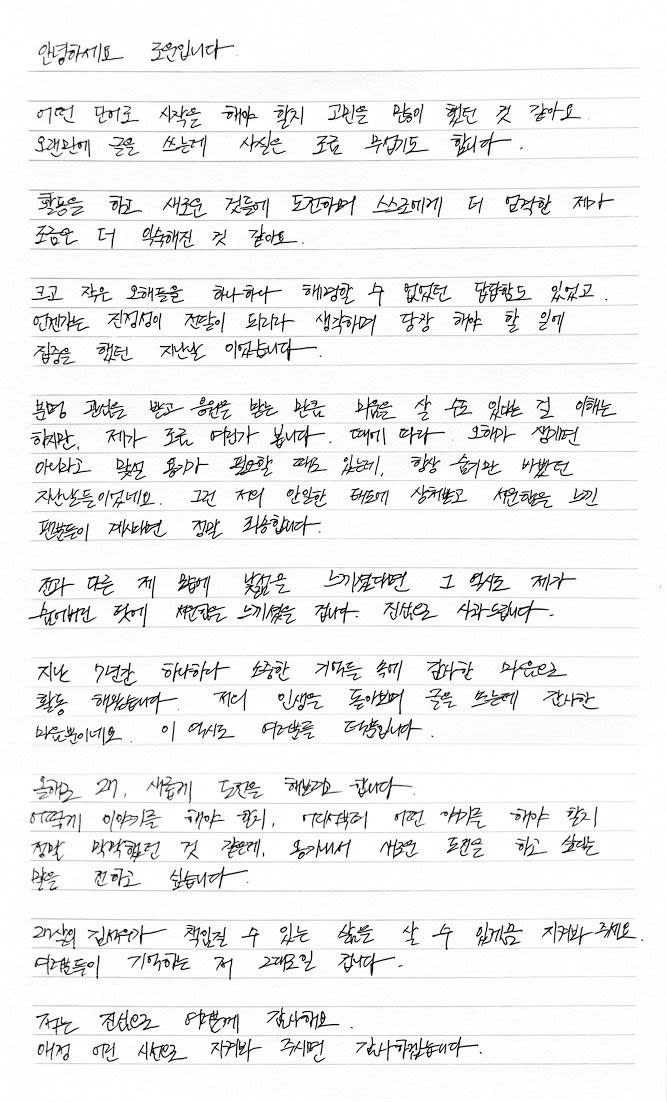 안녕하세요 로운입니다.
어떤 단어로 시작을 해야 할지 고민을 많이 했던 것 같아요.
오랜만에 글을 쓰는데 사실은 조금 무섭기도 합니다.
활동을 하고 새로운 것들에 도전하며 스스로에게 더 엄격한 제가
조금은 더 익숙해진 것 같아요.
크고 작은 오해들을 하나하나 해명할 수 없었던 답답함도 있었고,
언젠가는 진정성이 전달이 되리라 생각하며 당장 해야 할 일에
집중을 했던 지난날 이었습니다.
분명 관심을 받고 응원을 받는 만큼 미움을 살 수도 있다는 걸 이해는
하지만, 제가 조금 여린가 봅니다. 때에 따라 오해가 생기면
아니라고 맞설 용기가 필요할 때도 있는데, 항상 숨기만 바빴던
지난날들이었네요. 그런 저의 안일한 태도에 상처받고 서운함을 느낀
팬분들이 계시다면 정말 죄송합니다.
전과 다른 제 모습에 낯섦을 느끼셨다면 그 역시도 제가
숨어버린 탓에 서운함을 느끼셨을 겁니다. 진심으로 사과드립니다.
지난 7년간 하나하나 소중한 기억들 속에 감사한 마음으로
활동 해왔습니다. 저의 인생을 돌아보며 글을 쓰는데 감사한
마음뿐이네요. 이 역시도 여러분들 덕분입니다.
올해로 27, 새롭게 도전을 해보려고 합니다.
어떻게 이야기를 해야 할지, 어디서부터 어떤 얘기를 해야 할지
정말 막막했던 것 같은데, 용기내서 새로운 도전을 하고 싶다는
말을 전하고 싶습니다.
27살의 김석우가 책임질 수 있는 삶을 살 수 있게끔 지켜봐 주세요.
여러분들이 기억하는 저 그대로일 겁니다.
저는 진심으로 여러분께 감사해요.
애정 어린 시선으로 지켜봐 주시면 감사하겠습니다.